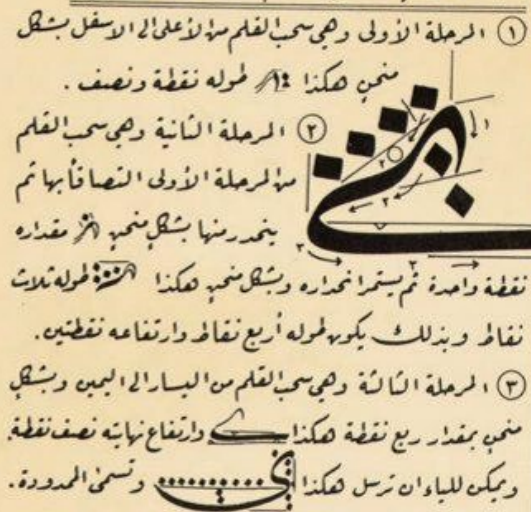 ① المرحلة الأولى وهي سحب القلم من الأعلى الى الاسفل بشكل
منحن هكذا طوله نقطة ونصف .
② المرحلة الثانية وهي سحب القلم
من المرحلة الأولى التصاقاً بها ثم
ينحدر منها بشكل منحن مقداره
نقطة واحدة ثم يستمر انحداره وبشكل منحن هكذا طوله ثلاث
نقاط وبذلك يكون طوله أربع نقاط وارتفاعه نقطتين.
③ المرحلة الثالثة وهي سحب القلم من اليسار الى اليمين وبشكل
منحن بمقدار ربع نقطة هكذا وارتفاع نهايته نصف نقطة.
ويمكن للياء ان ترسل هكذا وتسمى الممدودة.